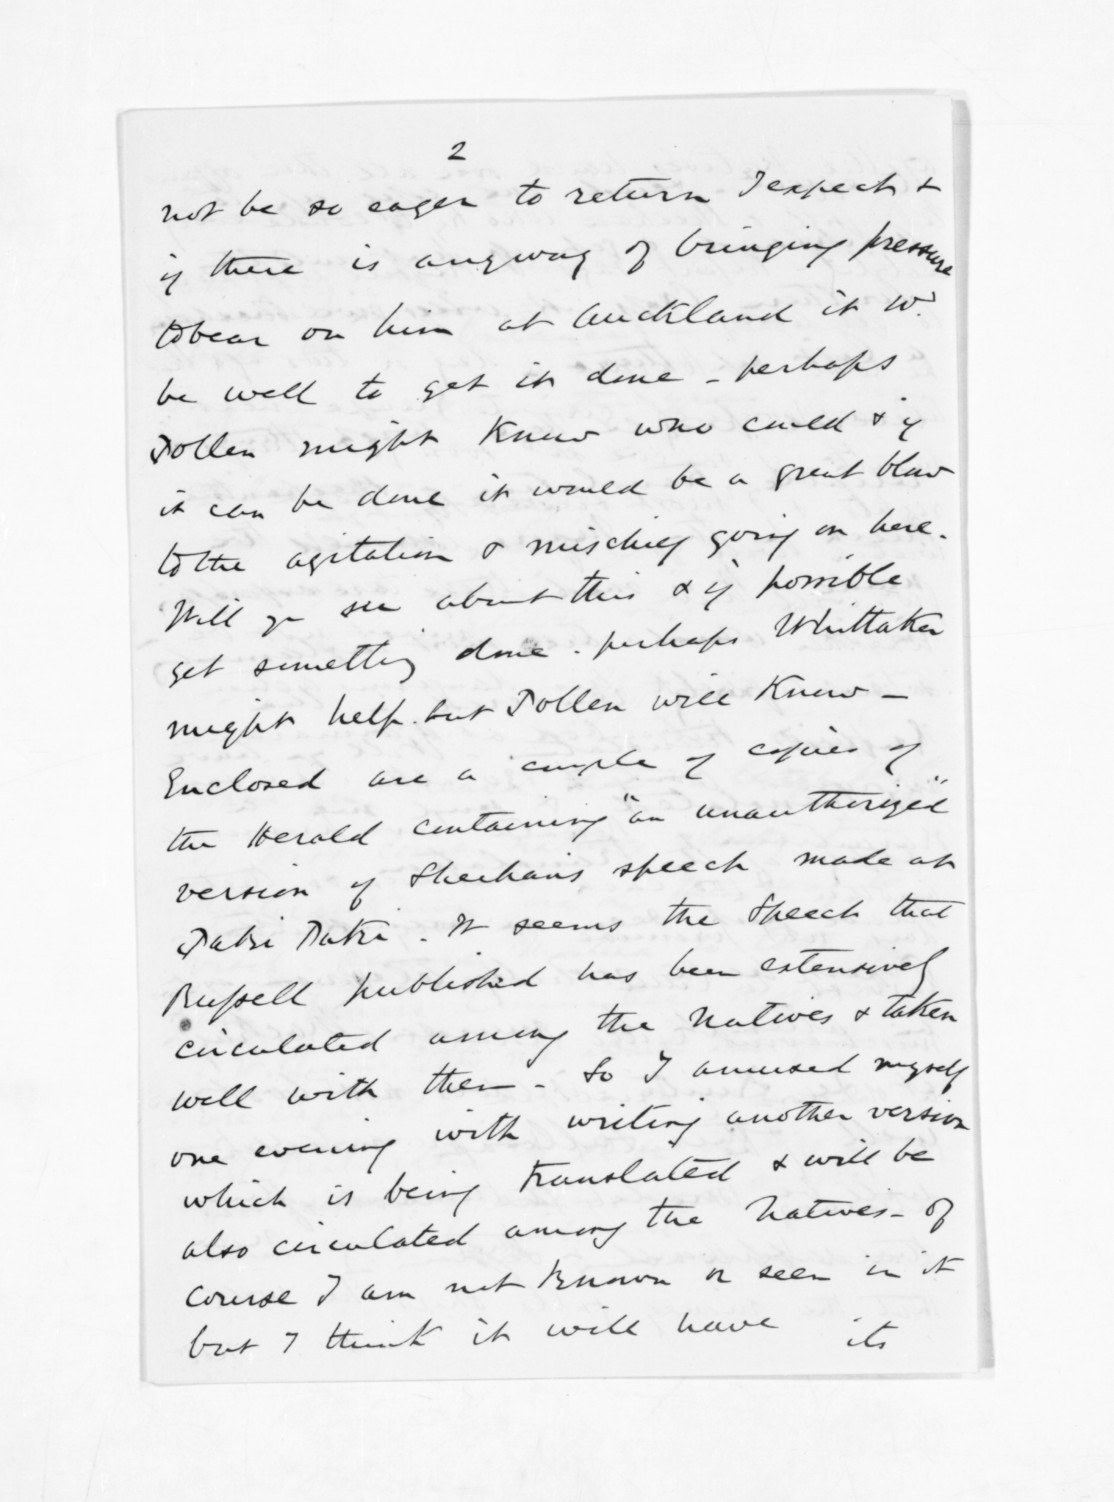 2
not be so eager to return I expect &
if there is anyway of bringing pressure
to bear on him at Auckland it wd.
be well to get it done - perhaps
Pollen might know who could & if
it can be done it would be a great blow
to the agitation & mischief going on here.
Will yu see about this & if possible
get something done. perhaps Whittaker
might help. but Pollen will know -
Enclosed are a couple of copies of
the Herald containing "an unauthorized"
version of Sheehan's speech made at
Paki Paki. It seems the Speech that
Russell published has been extensively
circulated among the Natives & taken
well with them - So I amused myself
one evening with writing another version
which is being translated & will be
also circulated among the Natives - Of
course I am not known or seen in it
but I think it will have its